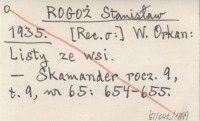 ROGOŻ Stanisław
1935. [Rec. o:] W. Orkan:
Listy ze wsi.
— Skamander rocz. 9,
t. 9, nr 65: 654-655.